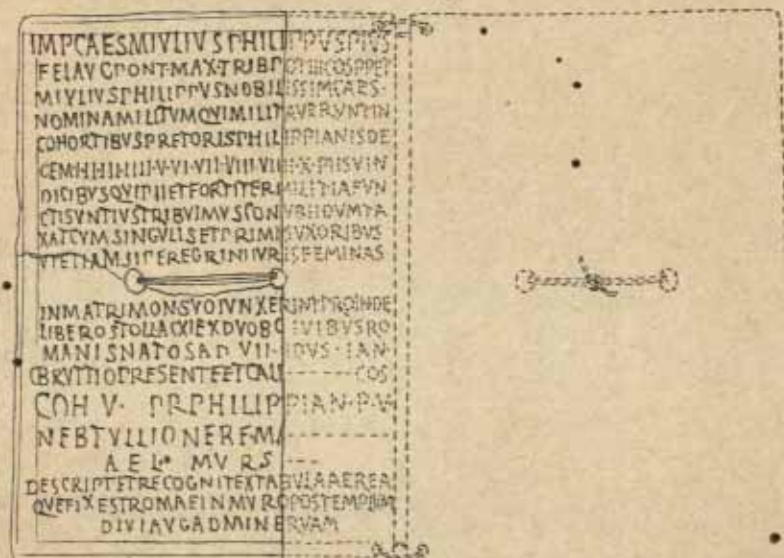 IMPCAESMIVLIVSPHILIPPVSPIVS
FELAVGPONT·MAX·TRIBPOTIIICOSPPET
MIVLIVSPHILIPPVSNOBILISSIMCAES·
NOMINAMILITVMQVIMILITAVERVNTIN
COHORTIBVSPRETORISPHILIPPIANISDE
CEM·I·II·III·IIII·V·VI·VII·VIII·VIIII·X·PIISVIN
DICIBVSQVIPIIETFORTITERMILITIAFVN
CTISVNTIVSTRIBVIMVSCONVBIIDVMTA
XATCVMSINGVLISETPRIMISVXORIBVS
VTETIAMSIPEREGRINIIVRISFEMINAS
INMATRIMONSVOIVNXERINTPROINDE
LIBEROSTOLLACXIEXDVOBCIVIBVSRO
MANISNATOSAD·VII·IDVS·IAN·
CBRVTTIOPRESENTEETCALL------COS
COH V· PRPHILIPPIAN·P·V·
NEBTVLLIONEREMA------
AEL· MVRS----
DESCRIPTETRECOGNITEXTABVLAAEREA
QVEFIXESTROMAEINMVROPOSTEMPLVM
DIVIAVGADMINERVAM